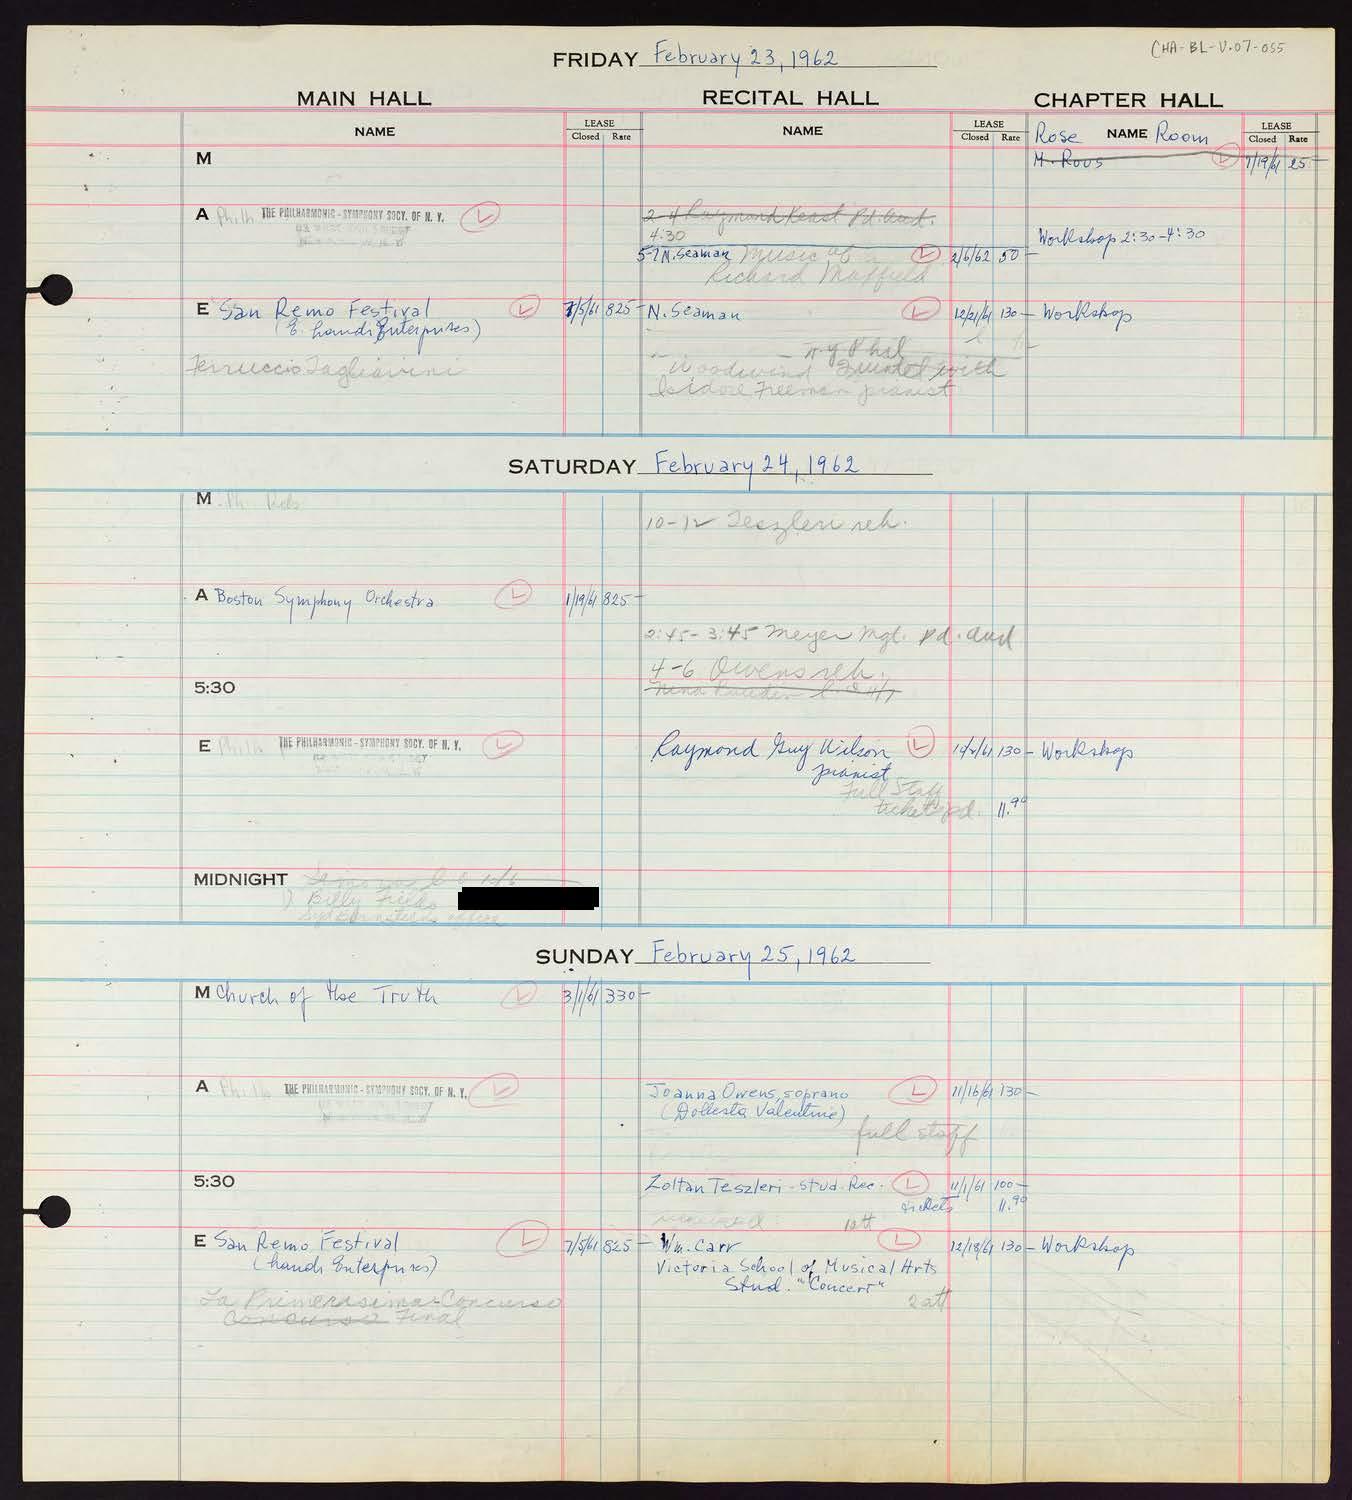 CHA-BL-V.07-055
FRIDAY February 23, 1962
MAIN HALL RECITAL HALL CHAPTER HALL
NAME LEASE Closed Rate NAME LEASE Closed Rate Rose NAME Room LEASE Closed Rate
M M. Rous L 7/19/61 25-
A Phil THE PHILHARMONIC-SYMPHONY SOCY. OF N. Y. L 2-4 Raymond Keast Pd. Aud.
4:30 Workshop 2:30-4:30
5-7 N. Seaman Music of L 2/6/62 50-
Richard Maxfield
E San Remo Festival L 7/5/61 825- N. Seaman L 12/21/61 130- Workshop
(E. Landi Enterprises)
N.Y. Phil
Ferruccio Tagliavini Woodwind Quintet with
Isidore Freeman pianist
SATURDAY February 24, 1962
M
10-12 Teszleri reh.
A Boston Symphony Orchestra L 1/19/61 825-
2:45-3:45 Meyer Mgt. Pd. Aud
4-6 Owens reh.
5:30
E Philh THE PHILHARMONIC-SYMPHONY SOCY. OF N. Y. L Raymond Guy Wilson L 130- Workshop
pianist
Full Staff
tickets pd. 11.90
MIDNIGHT
1) Billy Fields
Syd Bernstein's office
SUNDAY February 25, 1962
M Church of the Truth L 3/1/61 330-
A Philh THE PHILHARMONIC-SYMPHONY SOCY. OF N. Y. L Joanna Owens, soprano L 11/16/61 130-
(Dollesta Valentine)
full staff
5:30 Zoltan Teszleri - Stud. Rec. L 11/1/61 100-
tickets 11.90
E San Remo Festival L 7/5/61 825- Wm. Carr L 12/18/61 130- Workshop
(Landi Enterprises) Victoria School of Musical Arts
Stud. "Concert"
La Primerasima Concurso 2 att
Concurso Final